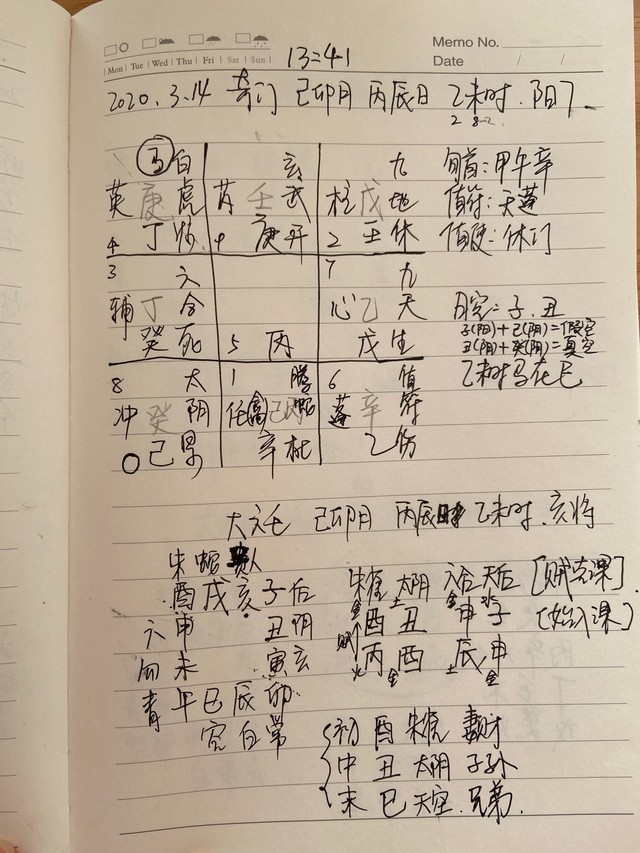 13:41
Memo No.
Mon Tue Wed Thu Fri Sat Sun
Date / /
2020.3.14 奇门 己卯月 丙辰日 乙未时.阳7
马 白 玄 九
英 庚 虎 芮 壬 武 柱 戊 地
4 丁 9 庚 开 2 壬 休
旬首:甲午辛
值符:天蓬
值使:休门
3 六 7 九
辅 丁 合 心 乙 天
癸 死 5 丙 戊 生
旬空:子.丑
子(阳)+己(阴)=假空
丑(阴)+癸(阴)=真空
乙未时马在巳
8 太 1 螣 6 值
冲 癸 阴 任 禽 己 丙 蛇 蓬 辛 符
己 景 辛 杜 乙 伤
大六壬 己卯月 丙辰 乙未时.亥将
朱 蛇 贵人
酉 戌 亥 子 后
六 申 丑 阴
勾 未 寅 玄
青 午 巳 辰 卯
空 白 常
朱雀 太阴 六合 天后 [贼克课]
金 土 金 水
酉 丑 申 子 [始入课]
贼
丙 酉 辰 申
火 金 土 金
初 酉 朱雀 妻财
中 丑 太阴 子孙
末 巳 天空.兄弟.